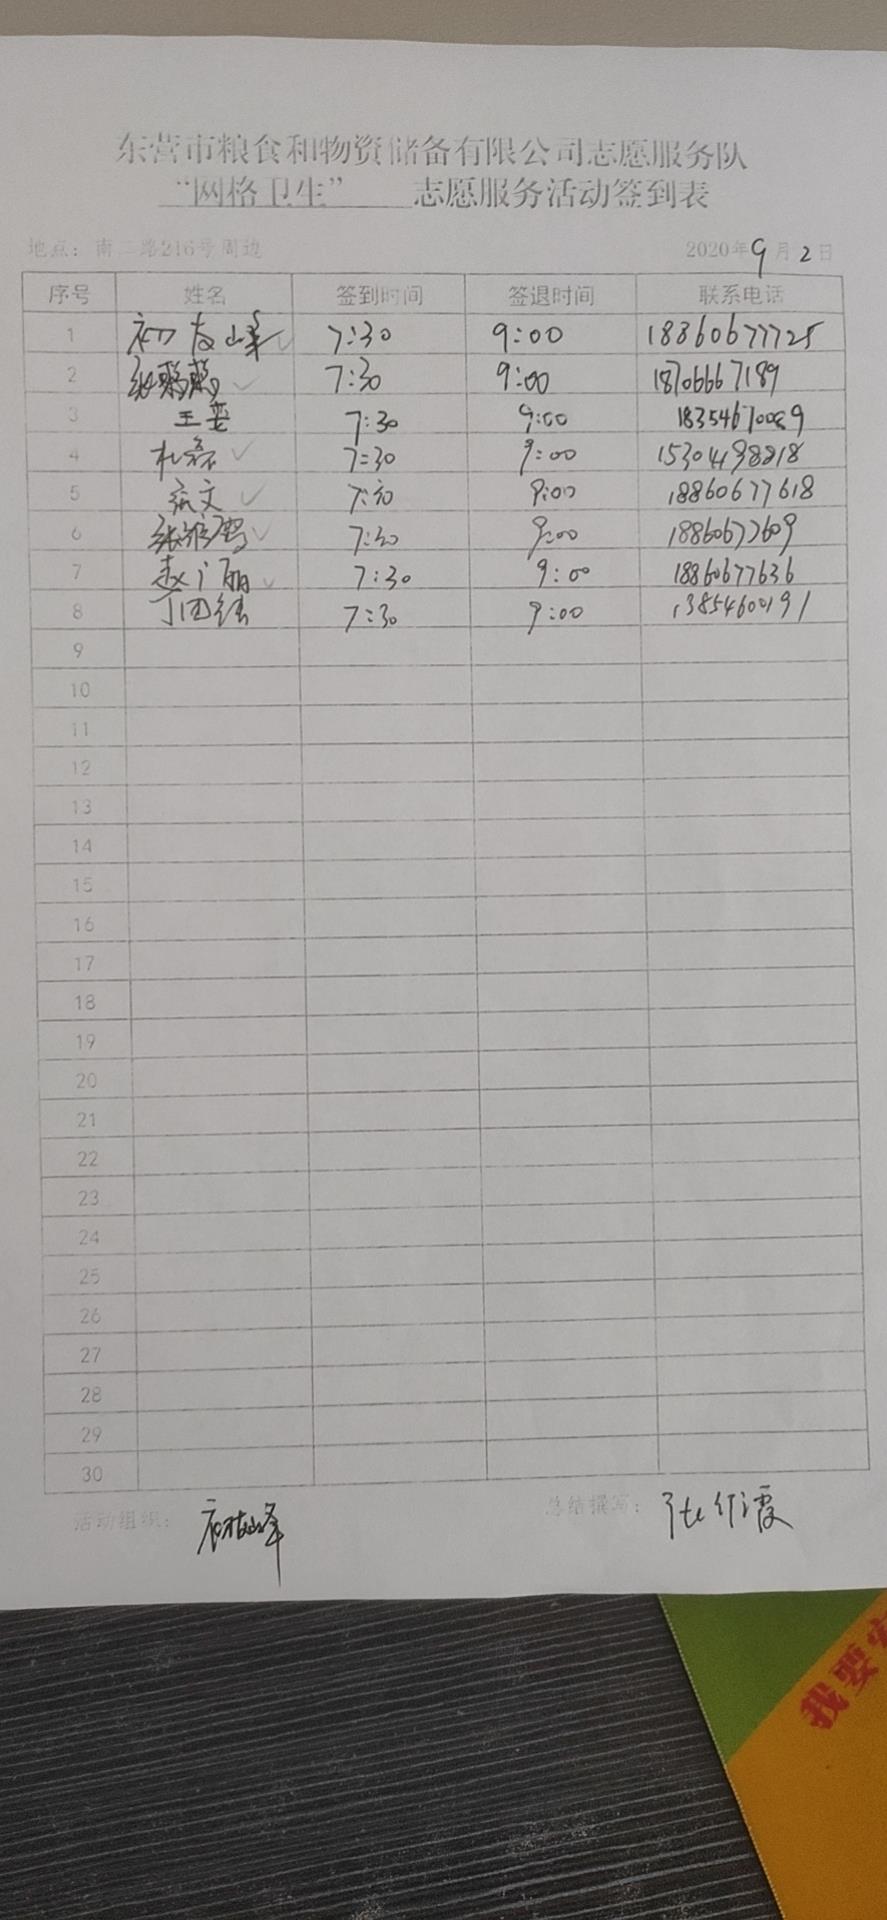 东营市粮食和物资储备有限公司志愿服务队
“网格卫生” 志愿服务活动签到表
地点：南二路216号周边 2020年9月2日
序号 姓名 签到时间 签退时间 联系电话
1 初友峰 7:30 9:00 18860677725
2 7:30 9:00 18706667189
3 王娄 7:30 9:00 18354670089
4 杜磊 7:30 9:00 15304198818
5 文 7:30 9:00 18860677618
6 张 7:30 9:00 18860677609
7 赵广丽 7:30 9:00 18860677636
8 丁团结 7:30 9:00 13854600191
9
10
11
12
13
14
15
16
17
18
19
20
21
22
23
24
25
26
27
28
29
30
活动组织： 初友峰 总结撰写： 张红霞
我要